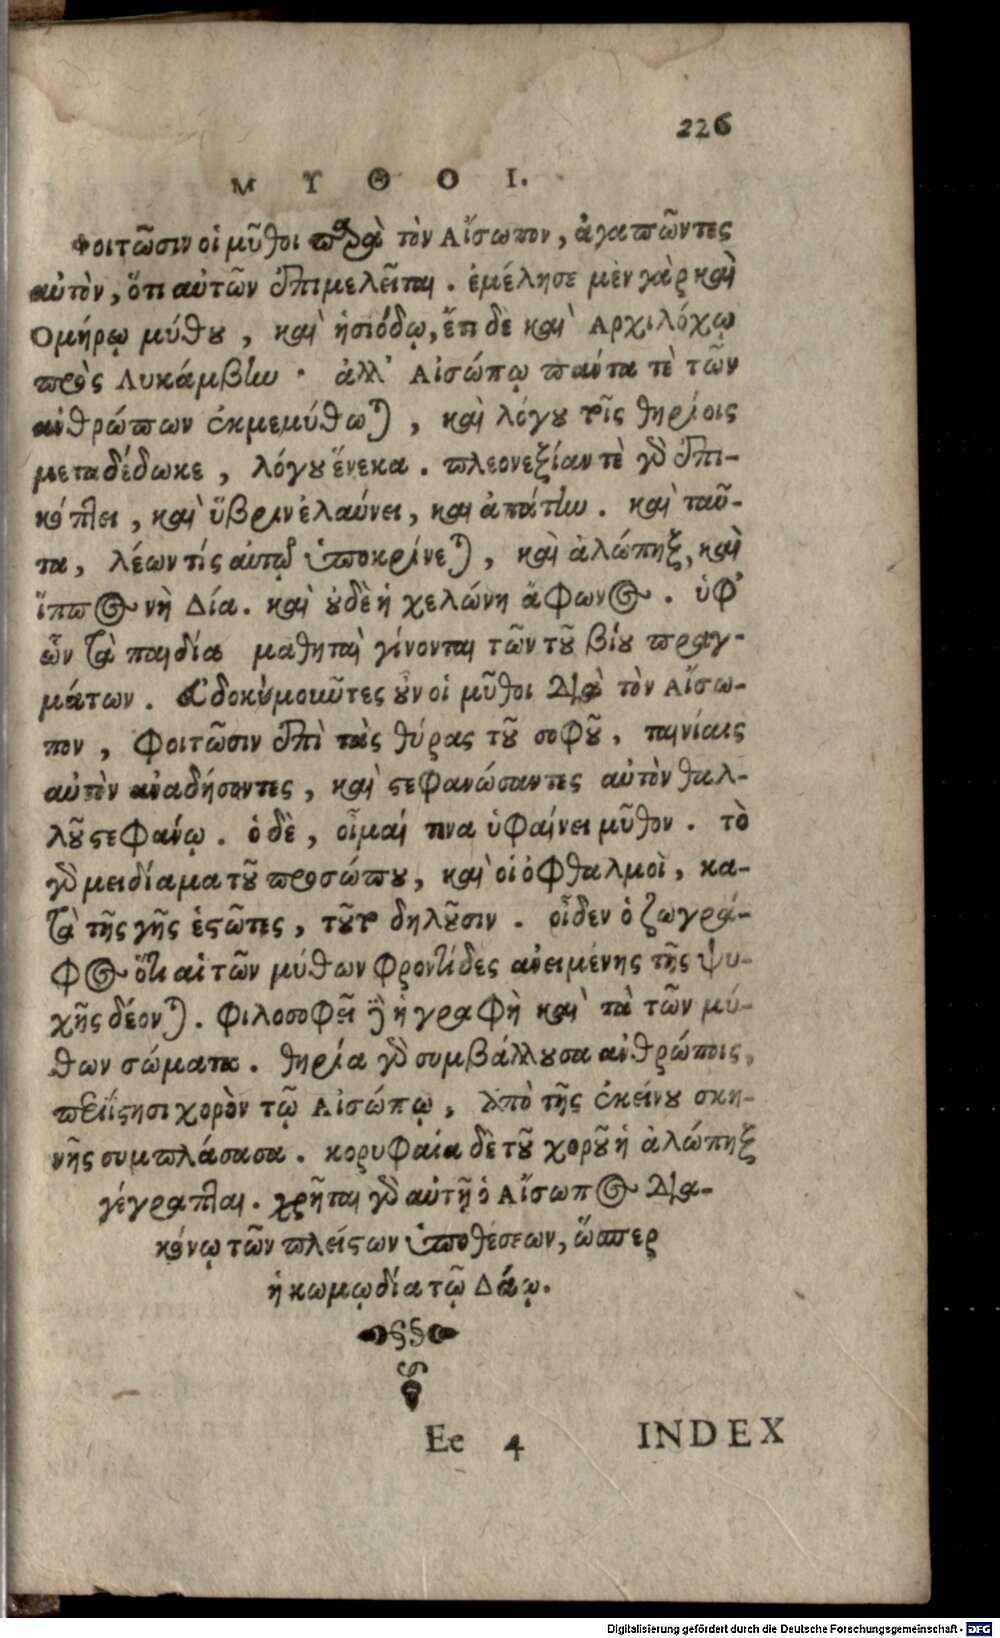 226
ΜΥΘΟΙ.
Φοιτῶσιν οἱ μῦθοι παρὰ τὸν Αἴσωπον, ἀγαπῶντες
αὐτὸν, ὅτι αὐτῶν ἐπιμελεῖται. ἐμέλησε μὲν γὰρ καὶ
Ομήρῳ μύθου, καὶ ἡσιόδῳ, ἔτι δὲ καὶ Αρχιλόχῳ
πρὸς Λυκάμβην· ἀλλ' Αἰσώπῳ πάντα τὲ τῶν
ἀνθρώπων ἐκμεμύθωται, καὶ λόγου τοῖς θηρίοις
μεταδέδωκε, λόγου ἕνεκα. πλεονεξίαν τὲ γὰρ ἐπι-
κόπτει, καὶ ὕβριν ἐλαύνει, καὶ ἀπάτην. καὶ ταῦ-
τα, λέων τίς αὐτῷ ὑποκρίνεται, καὶ ἀλώπηξ, καὶ
ἵππος νὴ Δία. καὶ οὐδὲ ἡ χελώνη ἄφωνος. ὑφ'
ὧν τὰ παιδία μαθηταὶ γίνονται τῶν τοῦ βίου πραγ-
μάτων. εὐδοκιμοῦντες οὖν οἱ μῦθοι διὰ τὸν Αἴσω-
πον, φοιτῶσιν ἐπὶ τὰς θύρας τοῦ σοφοῦ, ταινίαις
αὐτὸν ἀναδήσοντες, καὶ στεφανώσαντες αὐτὸν θαλ-
λοῦ στεφάνῳ. ὁ δὲ, οἶμαί τινα ὑφαίνει μῦθον. τὸ
γὰρ μειδίαμα τοῦ προσώπου, καὶ οἱ ὀφθαλμοὶ, κα-
τὰ τῆς γῆς ἑστῶτες, τοῦτο δηλοῦσιν. οἶδεν ὁ ζωγρά-
φος ὅτι αἱ τῶν μύθων φροντίδες ἀνειμένης τῆς ψυ-
χῆς δέονται. φιλοσοφεῖ δὲ ἡ γραφὴ καὶ τὰ τῶν μύ-
θων σώματα. θηρία γὰρ συμβάλλουσα ἀνθρώποις,
περιίστησι χορὸν τῷ Αἰσώπῳ, ἀπὸ τῆς ἐκείνου σκη-
νῆς συμπλάσασα. κορυφαία δὲ τοῦ χοροῦ ἡ ἀλώπηξ
γέγραπται. χρῆται γὰρ αὐτῇ ὁ Αἴσωπος δια-
κόνῳ τῶν πλείστων ὑποθέσεων, ὥσπερ
ἡ κωμῳδία τῷ Δάῳ.
Ee 4 INDEX
Digitalisierung gefördert durch die Deutsche Forschungsgemeinschaft - DFG